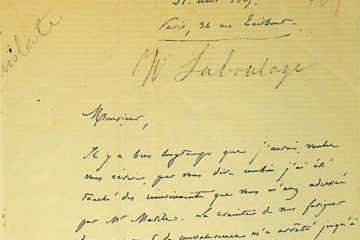 31 août 186
Paris, 34 rue Taitbout.
translate
Mr Laboulaye
Monsieur,
Il y a bien longtemps que j'aurais voulu
vous écrire, pour vous dire combien j'ai été
touché des remerciements que vous m'avez adressés
par Mr. La crainte de vous fatiguer
de convalescence m'a arrêté jusqu'à